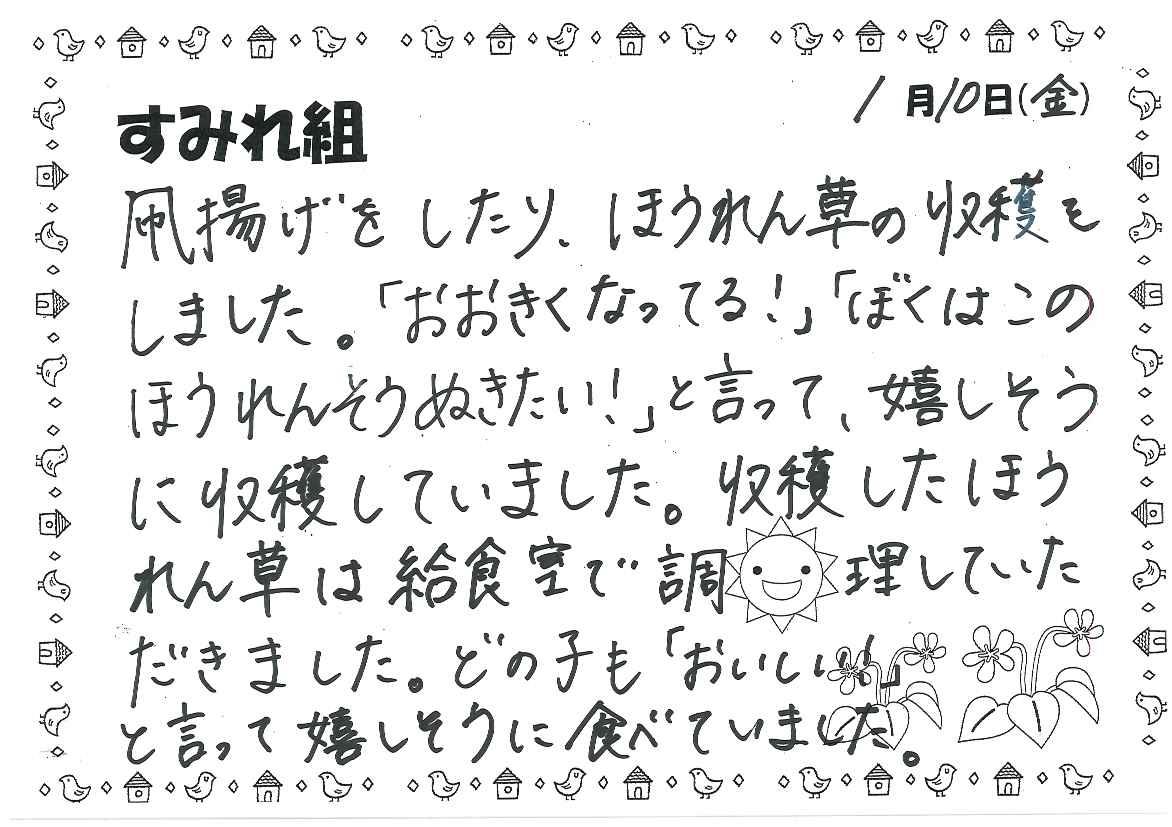 1月10日(金)
すみれ組
凧揚げをしたり、ほうれん草の収穫を
しました。「おおきくなってる!」「ぼくはこの
ほうれんそうぬきたい!」と言って、嬉しそう
に収穫していました。収穫したほう
れん草は給食室で調理していた
だきました。どの子も「おいしい!」
と言って嬉しそうに食べていました。